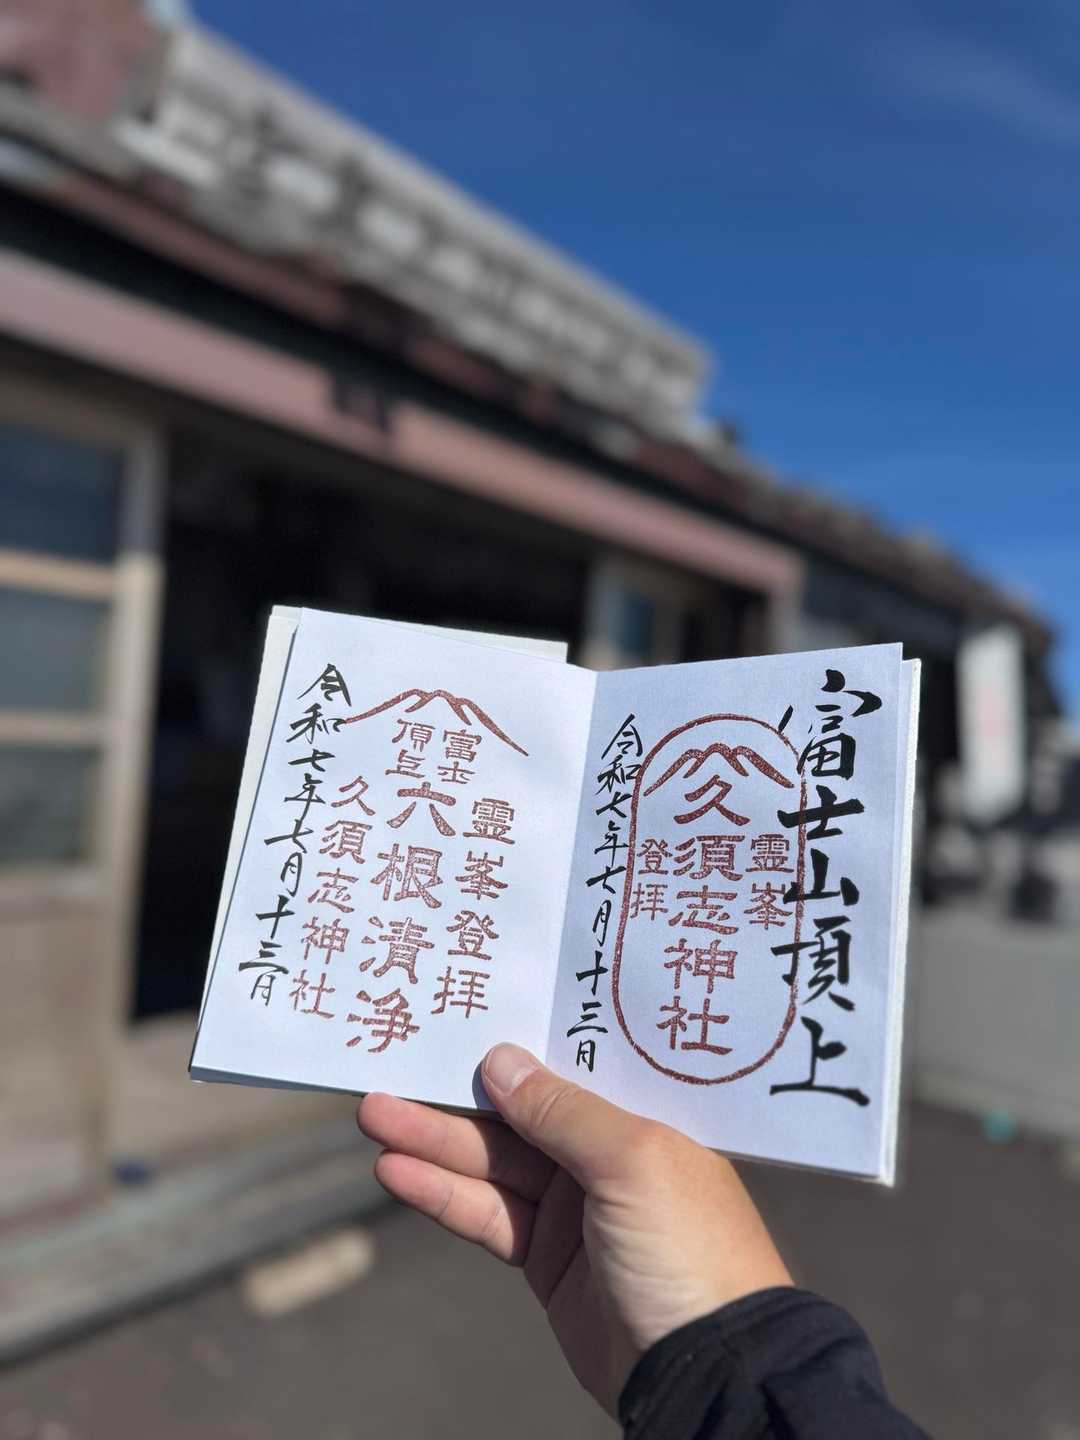 富士山頂上
霊峯
久須志神社
登拝
令和七年七月十三日
霊峯登拝
富士
頂上
六根清浄
久須志神社
令和七年七月十三日